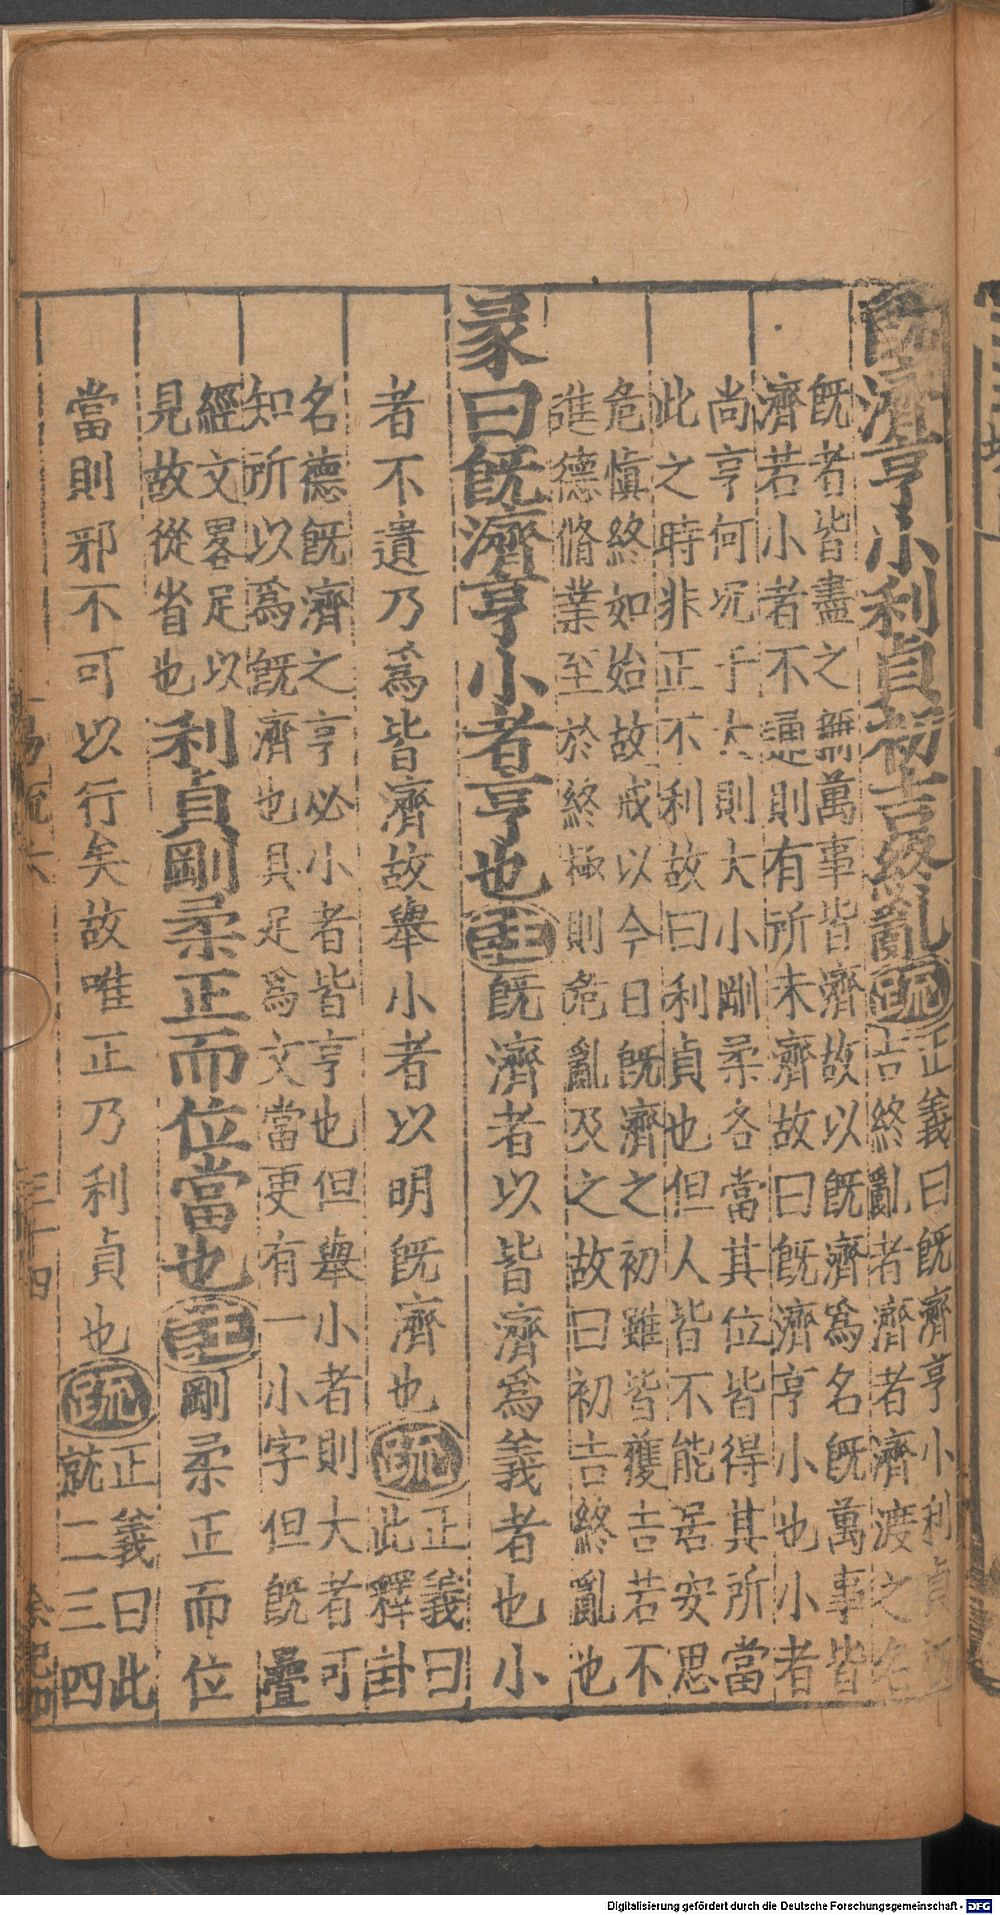 既濟亨小利貞初吉終亂疏正義曰既濟亨小利貞初
吉終亂者濟者濟渡之名
既者皆盡之稱萬事皆濟故以既濟爲名既萬事皆
濟若小者不通則有所未濟故曰既濟亨小也小者
尚亨何况于大則大小剛柔各當其位皆得其所當
此之時非正不利故曰利貞也但人皆不能居安思
危愼終如始故戒以今日既濟之初雖皆獲吉若不
進德脩業至於終極則危亂及之故曰初吉終亂也
彖曰既濟亨小者亨也註既濟者以皆濟爲義者也小
者不遺乃爲皆濟故舉小者以明既濟也疏正義曰
此釋卦
名德既濟之亨必小者皆亨也但舉小者則大者可
知所以爲既濟也具足爲文當更有一小字但既疊
經文畧足以
見故從省也利貞剛柔正而位當也註剛柔正而位
當則邪不可以行矣故唯正乃利貞也疏正義曰此
就二三四
易疏六
三十四
Digitalisierung gefördert durch die Deutsche Forschungsgemeinschaft - DFG